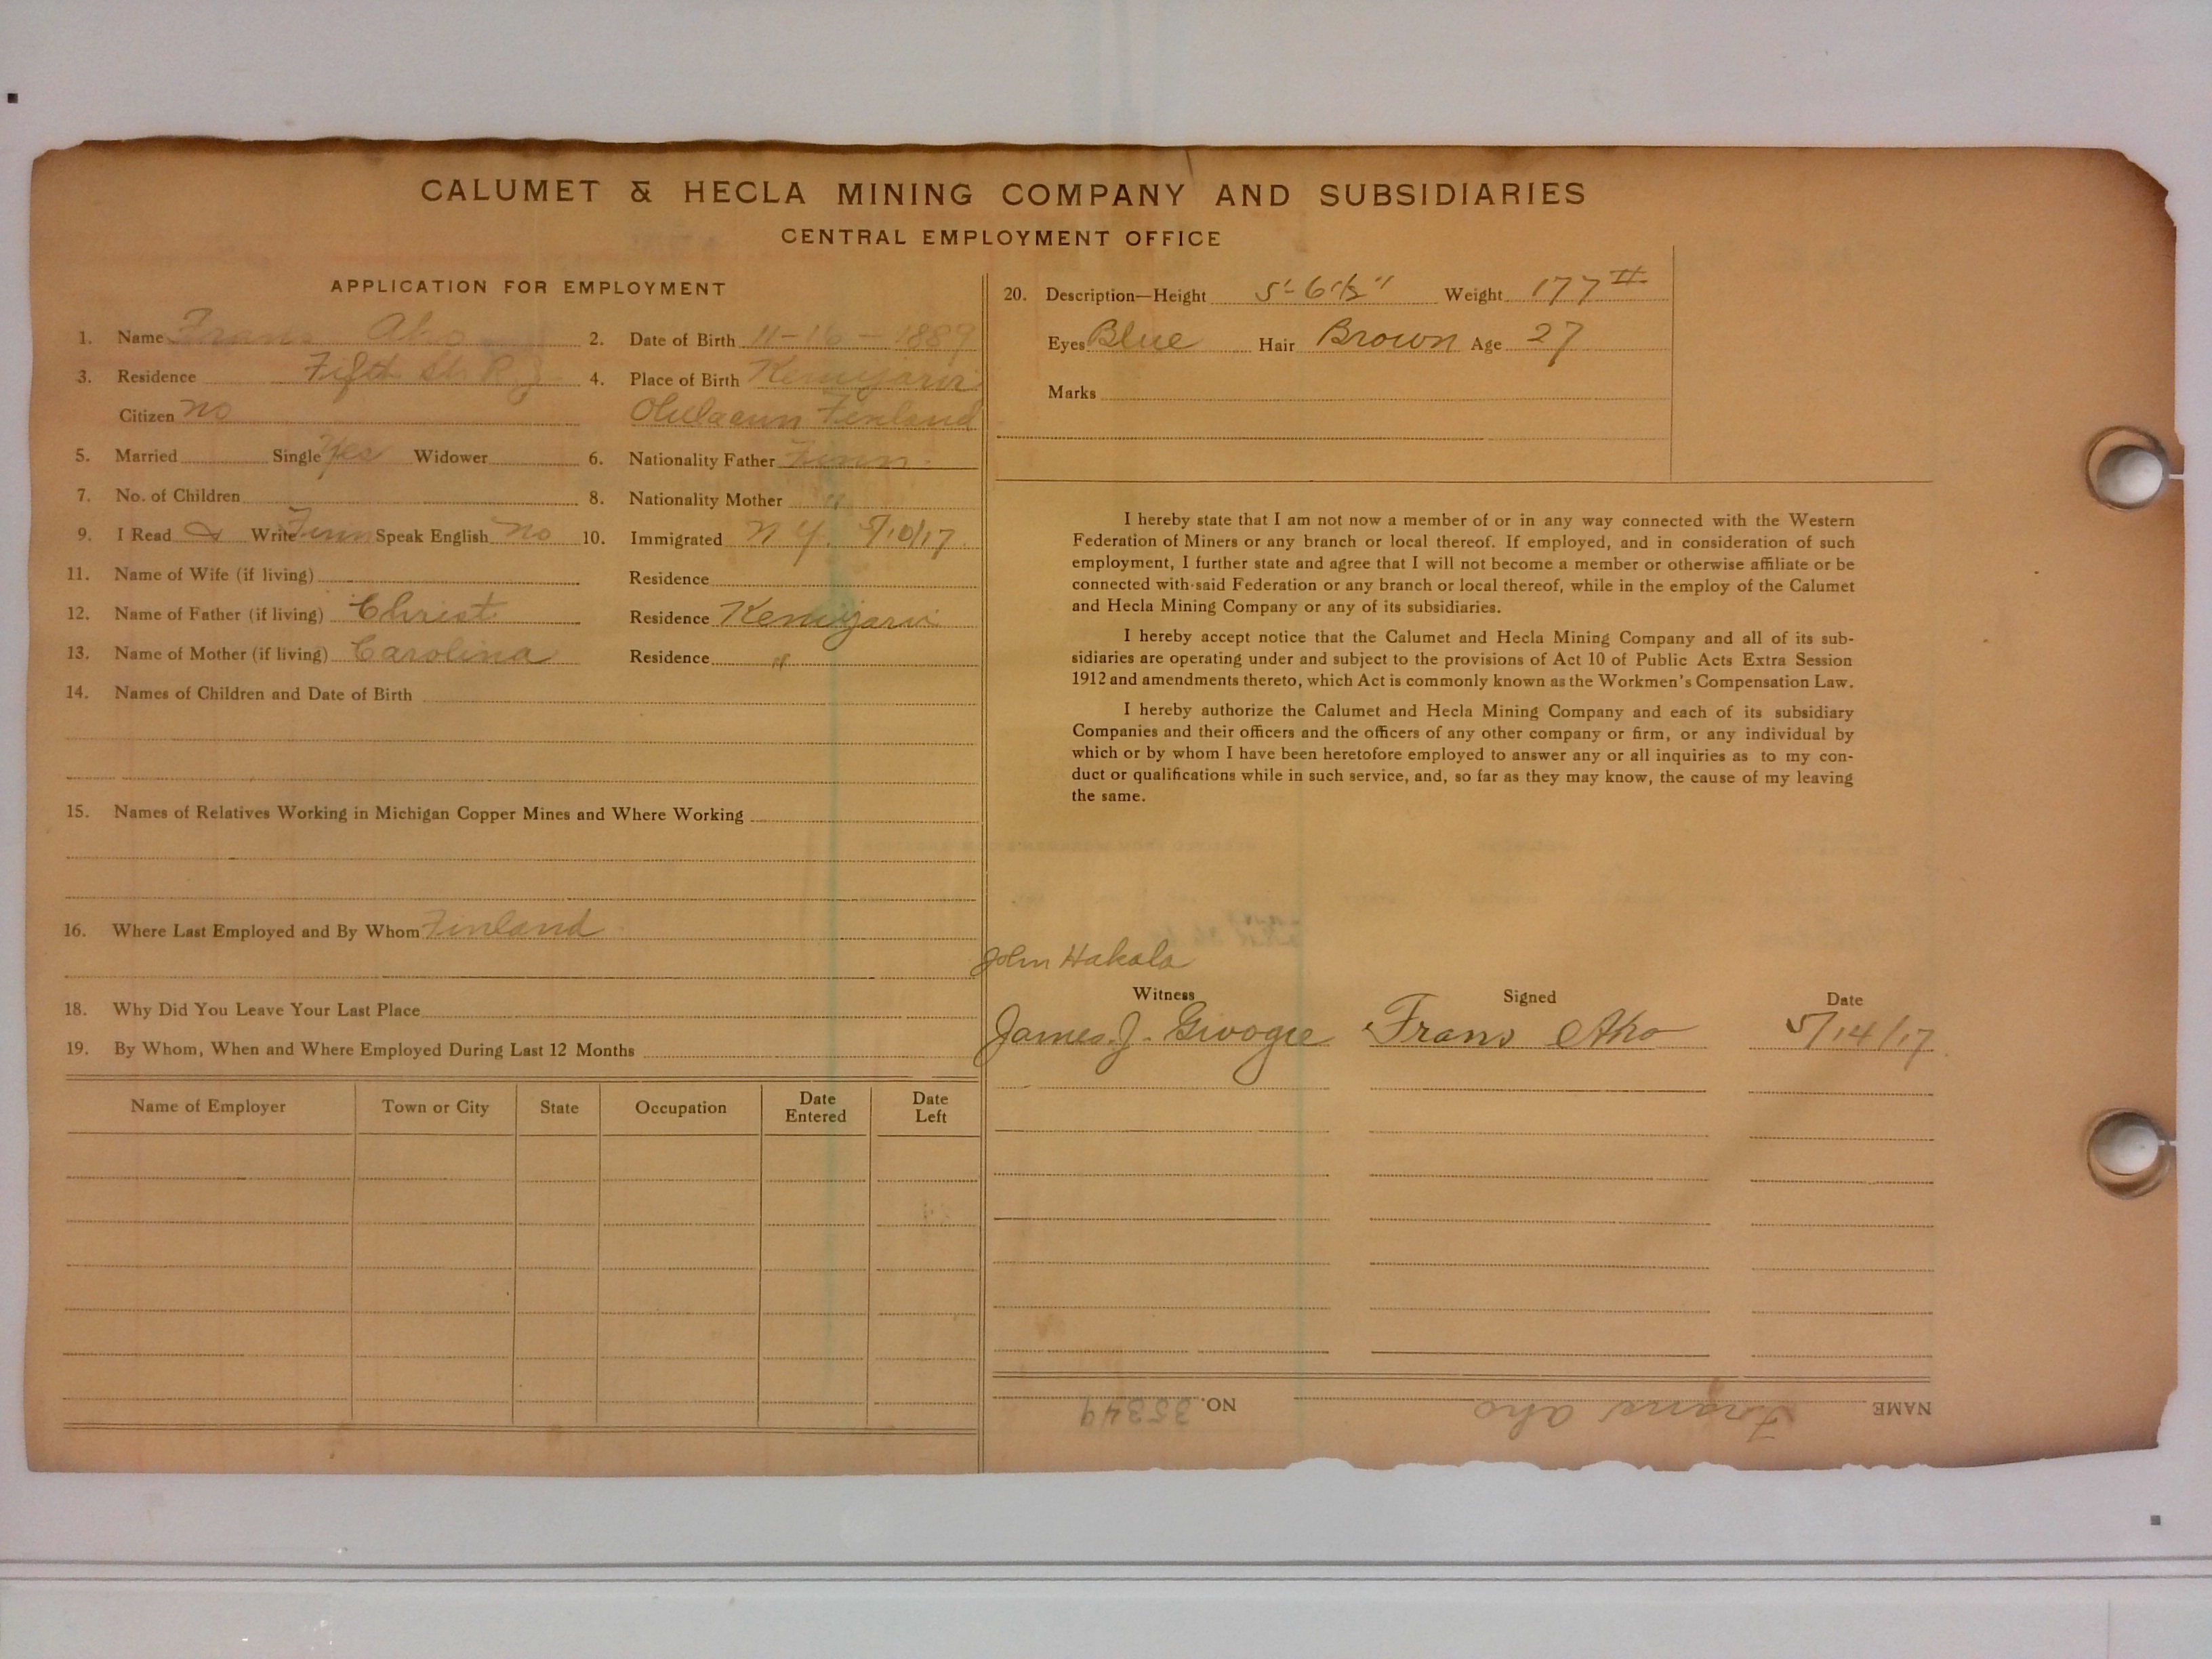 CALUMET & HECLA MINING COMPANY AND SUBSIDIARIES
CENTRAL EMPLOYMENT OFFICE
APPLICATION FOR EMPLOYMENT
1. Name Frans Aho 2. Date of Birth 11-16-1889
3. Residence Fifth St. 4. Place of Birth Kemijarvi
Citizen no Finland
5. Married Single Yes Widower 6. Nationality Father Finn.
7. No. of Children 8. Nationality Mother "
9. I Read & Write Finn Speak English no 10. Immigrated N Y. 5/10/17.
11. Name of Wife (if living) Residence
12. Name of Father (if living) Christ Residence Kemijarvi
13. Name of Mother (if living) Carolina Residence "
14. Names of Children and Date of Birth
15. Names of Relatives Working in Michigan Copper Mines and Where Working
16. Where Last Employed and By Whom Finland
18. Why Did You Leave Your Last Place
19. By Whom, When and Where Employed During Last 12 Months
Name of Employer Town or City State Occupation Date Entered Date Left
20. Description—Height 5'-6 1/2" Weight 177 #
Eyes Blue Hair Brown Age 27
Marks
I hereby state that I am not now a member of or in any way connected with the Western
Federation of Miners or any branch or local thereof. If employed, and in consideration of such
employment, I further state and agree that I will not become a member or otherwise affiliate or be
connected with said Federation or any branch or local thereof, while in the employ of the Calumet
and Hecla Mining Company or any of its subsidiaries.
I hereby accept notice that the Calumet and Hecla Mining Company and all of its sub-
sidiaries are operating under and subject to the provisions of Act 10 of Public Acts Extra Session
1912 and amendments thereto, which Act is commonly known as the Workmen's Compensation Law.
I hereby authorize the Calumet and Hecla Mining Company and each of its subsidiary
Companies and their officers and the officers of any other company or firm, or any individual by
which or by whom I have been heretofore employed to answer any or all inquiries as to my con-
duct or qualifications while in such service, and, so far as they may know, the cause of my leaving
the same.
John Hakala
Witness Signed Date
James. J. Frans Aho 5/14/17
NAME Frans Aho NO. 35349